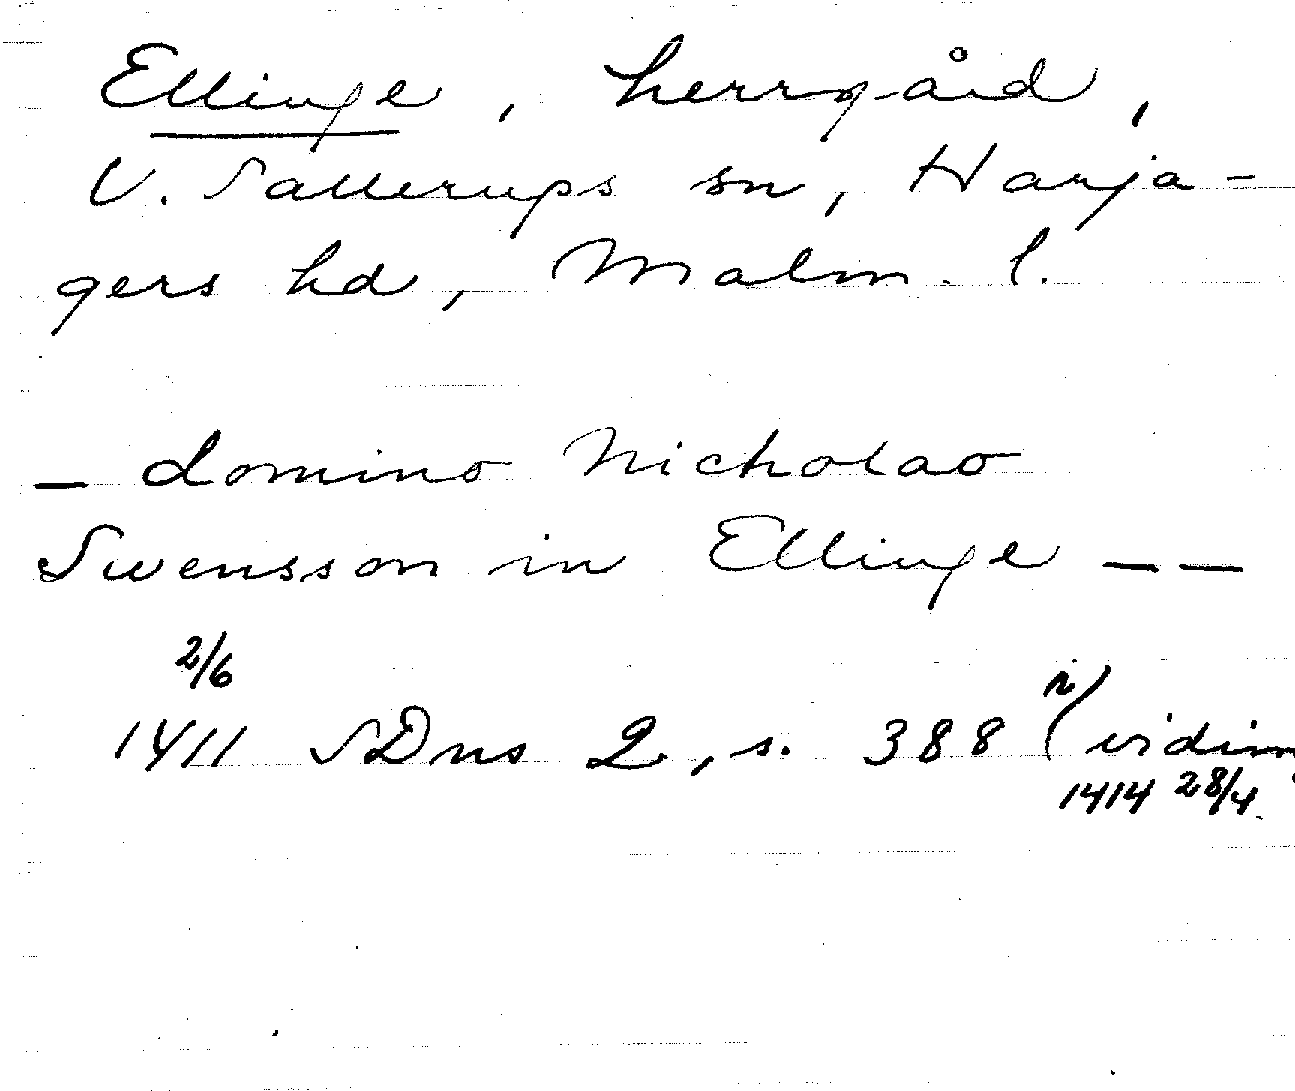 Ellinge, herrgård,
V. Sallerups sn, Harja-
gers hd, Malm. l.
- domino Nicholao
Swensson in Ellinge - -
2/6
1411 SDns 2, s. 388 i (vidim
1414 28/4.